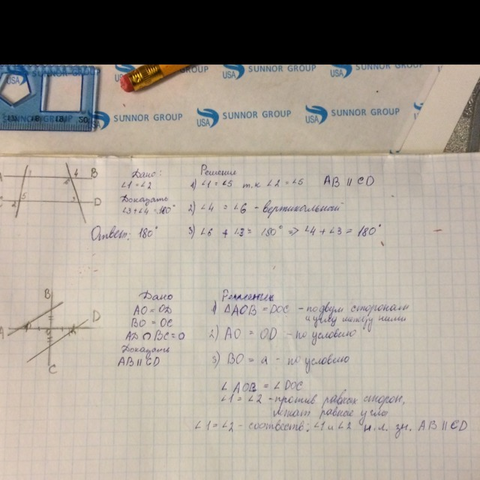 SUNNOR GROUP
USA SUNNOR GROUP
USA SUNNOR GROUP
SUNNOR GROUP USA SUNNOR GROUP USA
USA SUNNOR GROUP
A B
C D
Дано:
∠1=∠2
Доказать
∠3+∠4=180°
Ответ: 180°
Решение
1) ∠1=∠5 т.к ∠2=∠5 AB || CD
2) ∠4 = ∠6 - вертикальный
3) ∠6 + ∠3 = 180° => ∠4+∠3=180°
B
A D
C
Дано
AO=OD
BO=OC
AD∩BC=O
Доказать
AB||CD
Решение
1) ΔAOB=DOC - по двум сторонам
и углу между ними
2) AO = OD - по условию
3) BO = - по условию
∠AOB = ∠DOC
∠1=∠2 - против равных сторон,
лежат равные углы
∠1=∠2 - соответств. ∠1 и ∠2 н.л. зн. AB || CD